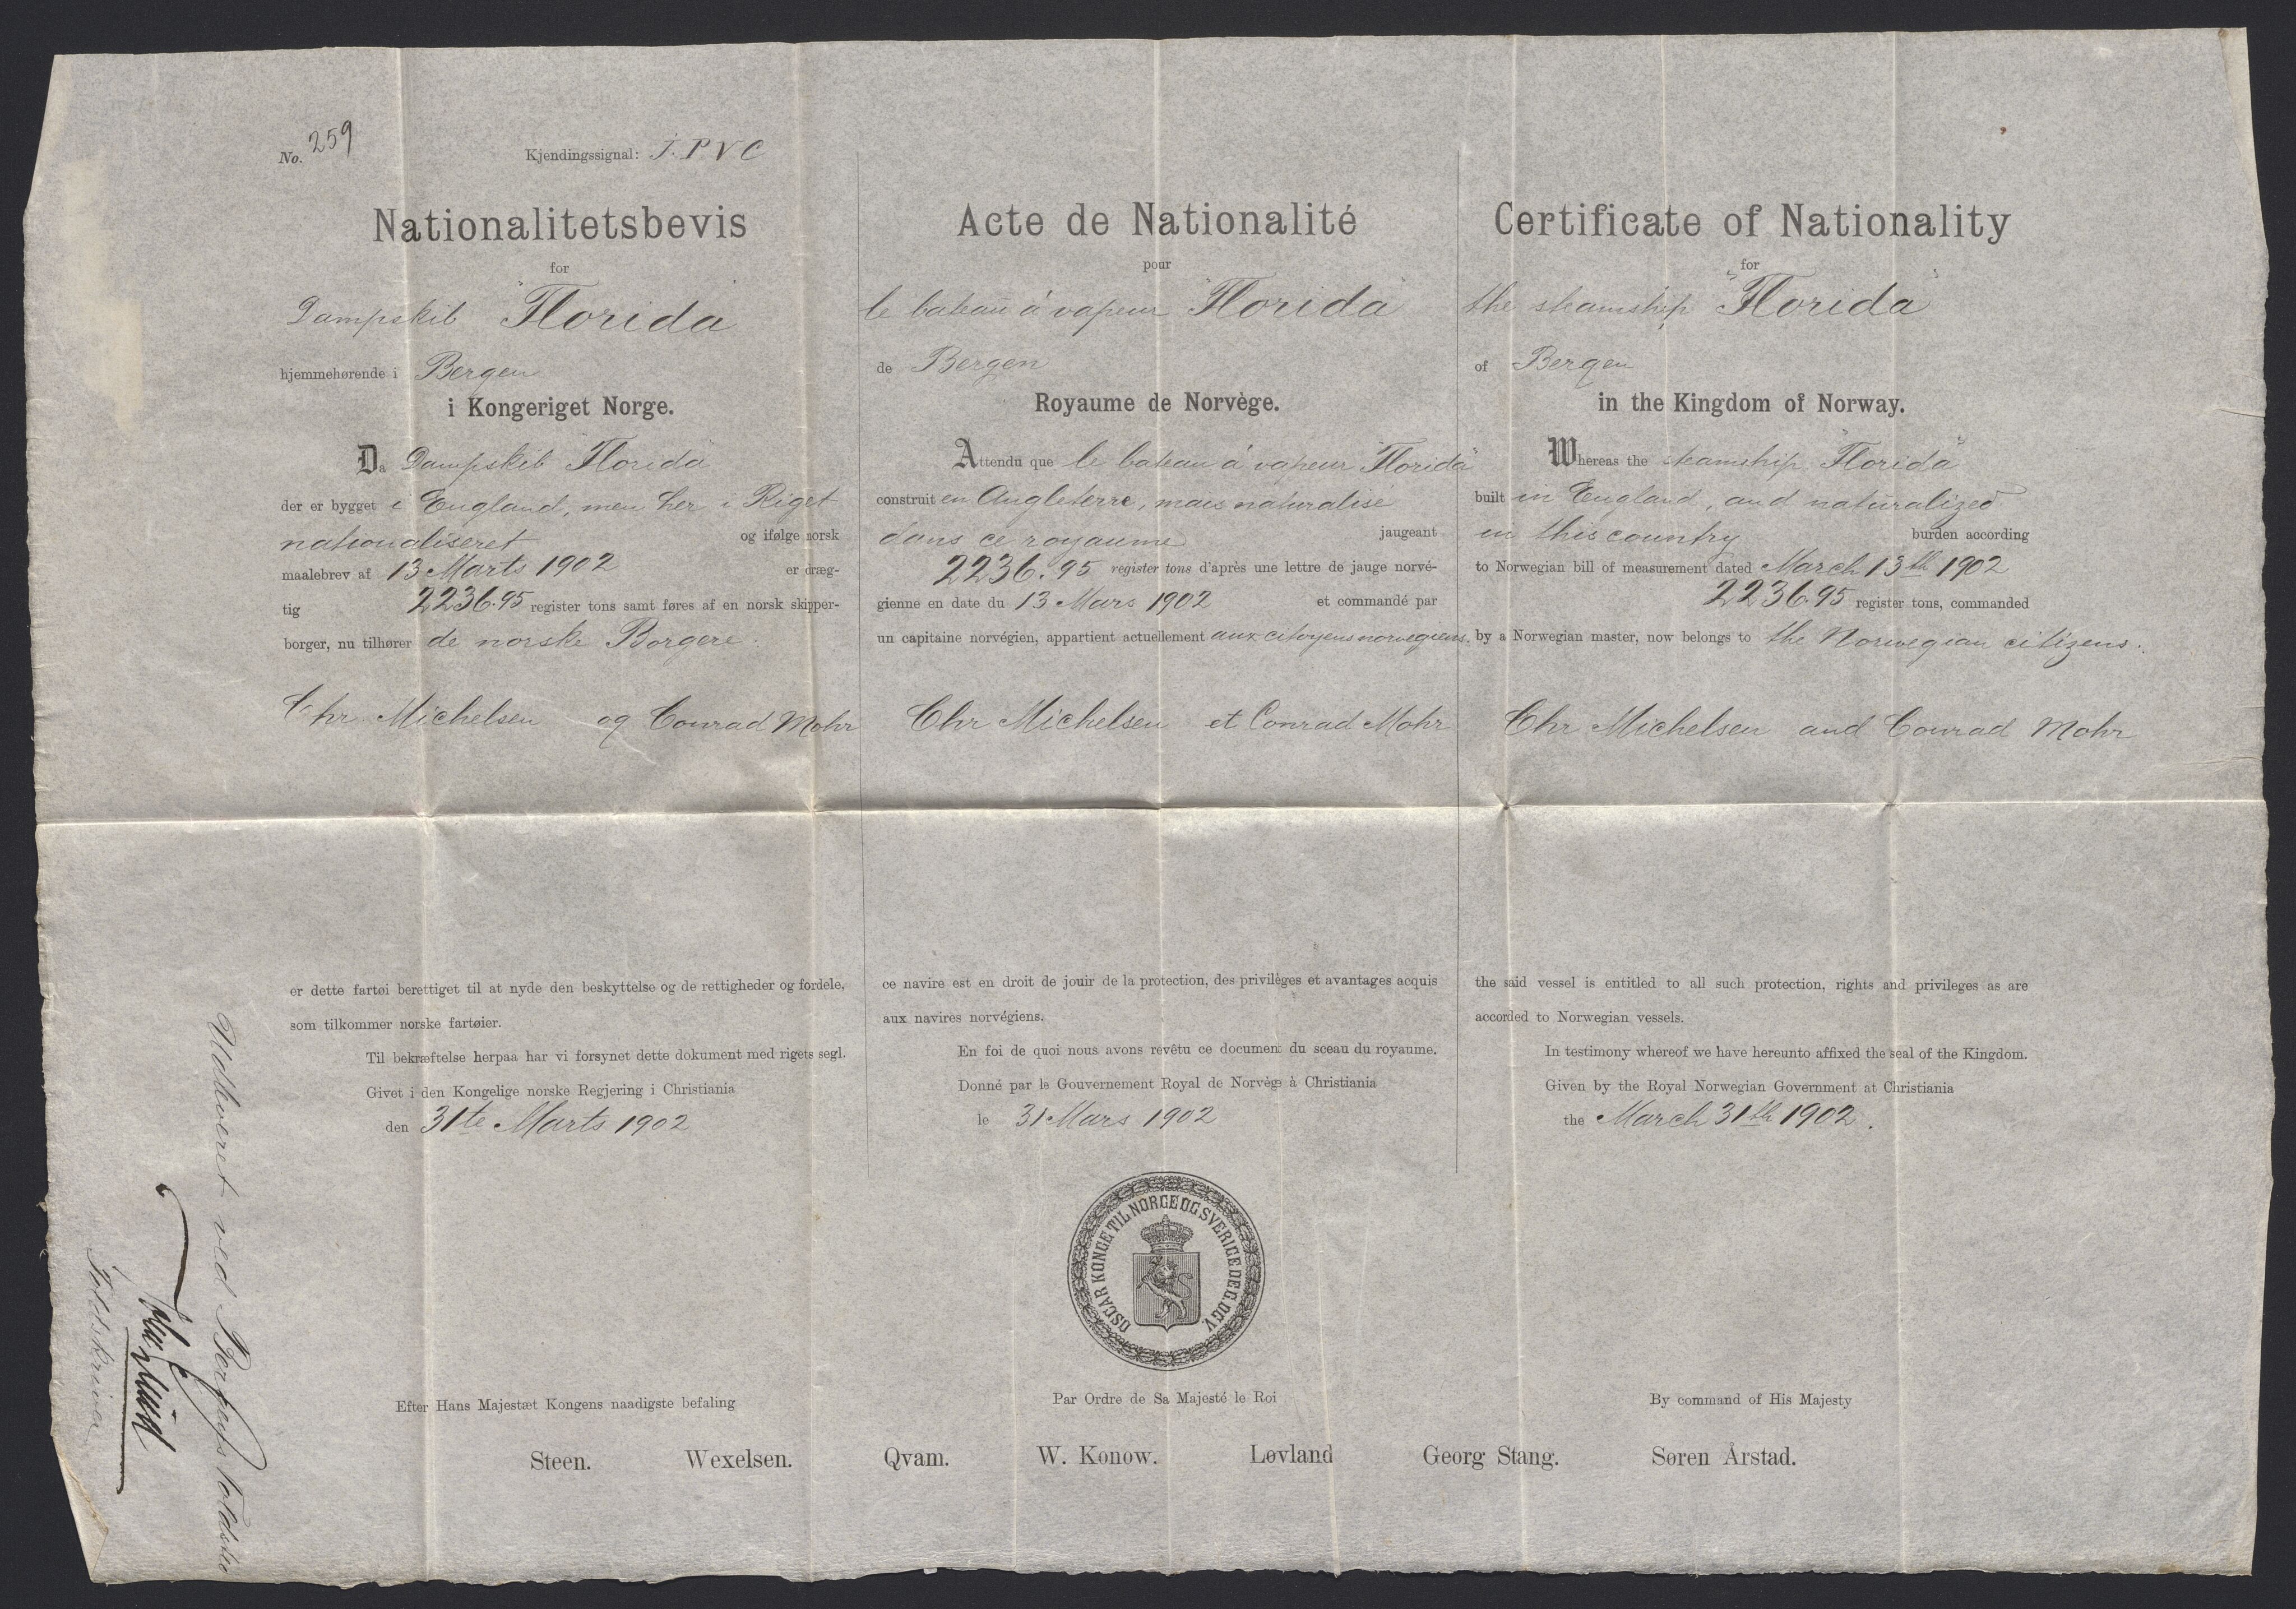 No. 259
Kjendingssignal: J. P V C
Nationalitetsbevis
for
Dampskib "Florida"
hjemmehørende i Bergen
i Kongeriget Norge.
Da Dampskib "Florida"
der er bygget i England, men her i Riget
nationaliseret og ifølge norsk
maalebrev af 13 Marts 1902 er dræg-
tig 2236.95 register tons samt føres af en norsk skipper-
borger, nu tilhører de norske Borgere.
Chr Michelsen og Conrad Mohr
er dette fartøi berettiget til at nyde den beskyttelse og de rettigheder og fordele,
som tilkommer norske fartøier.
Til bekræftelse herpaa har vi forsynet dette dokument med rigets segl.
Givet i den Kongelige norske Regjering i Christiania
den 31te Marts 1902
Acte de Nationalité
pour
le bateau à vapeur "Florida"
de Bergen
Royaume de Norvège.
Attendu que le bateau à vapeur "Florida"
construit en Angleterre, mais naturalisé
dans ce royaume jaugeant
2236.95 register tons d'après une lettre de jauge norvé-
gienne en date du 13 Mars 1902 et commandé par
un capitaine norvégien, appartient actuellement aux citoyens norvegiens.
Chr Michelsen et Conrad Mohr
ce navire est en droit de jouir de la protection, des privilèges et avantages acquis
aux navires norvégiens.
En foi de quoi nous avons revêtu ce document du sceau du royaume.
Donné par le Gouvernement Royal de Norvège à Christiania
le 31 Mars 1902
Certificate of Nationality
for
the steamship "Florida"
of Bergen
in the Kingdom of Norway.
Whereas the steamship "Florida"
built in England, and naturalized
in this country burden according
to Norwegian bill of measurement dated March 13th 1902
2236.95 register tons, commanded
by a Norwegian master, now belongs to the Norwegian citizens.
Chr Michelsen and Conrad Mohr
the said vessel is entitled to all such protection, rights and privileges as are
accorded to Norwegian vessels.
In testimony whereof we have hereunto affixed the seal of the Kingdom.
Given by the Royal Norwegian Government at Christiania
the March 31th 1902.
OSCAR KONGE TIL NORGE OG SVERIGE DE G. OG V.
Efter Hans Majestæt Kongens naadigste befaling
Par Ordre de Sa Majesté le Roi
By command of His Majesty
Steen. Wexelsen. Qvam. W. Konow. Løvland Georg Stang. Søren Årstad.
Udleveret ved Bergens